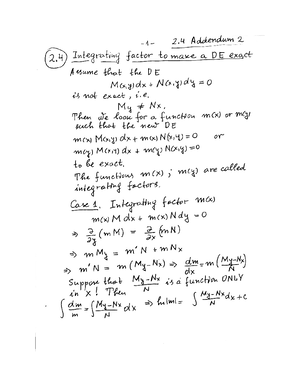 -1-
2.4 Addendum 2
2.4 Integrating factor to make a DE exact
Assume that the DE
M(x,y)dx + N(x,y)dy = 0
is not exact, i.e.
My ≠ Nx.
Then we look for a function m(x) or m(y)
such that the new DE
m(x) M(x,y)dx + m(x) N(x,y) = 0 or
m(y) M(x,y)dx + m(y) N(x,y) = 0
to be exact.
The functions m(x), m(y) are called
integrating factors.
Case 1. Integrating factor m(x)
m(x) M dx + m(x) N dy = 0
⇒ ∂/∂y (mM) = ∂/∂x (mN)
⇒ m My = m' N + m Nx
⇒ m' N = m (My - Nx) ⇒ dm/dx = m (My - Nx / N)
Suppose that My - Nx / N is a function ONLY
in x! Then
∫ dm/m = ∫ My - Nx / N dx ⇒ ln|m| = ∫ My - Nx / N dx + c